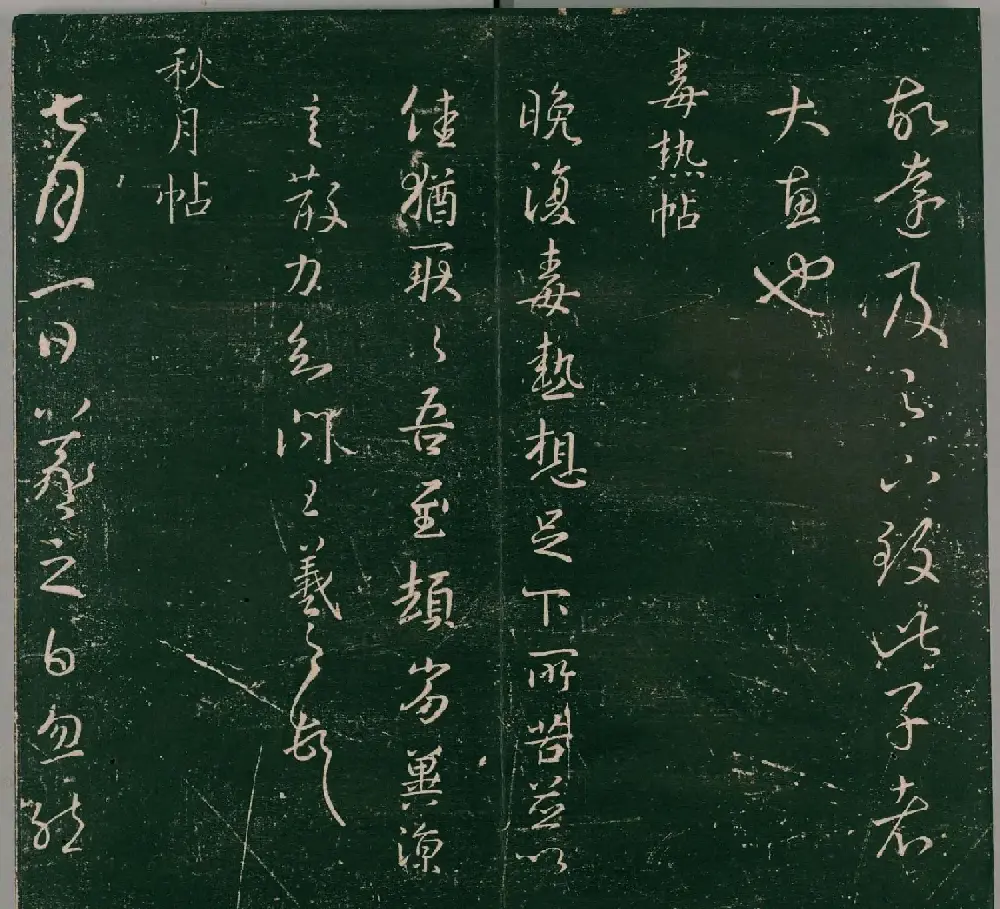 故遠及足下致此子者
大惠也
毒热帖
晚復毒熱想足下所苦并以
佳猶耿々吾至頓劣冀涼
言散力知問王羲之頓首
秋月帖
七月一日羲之白忽然